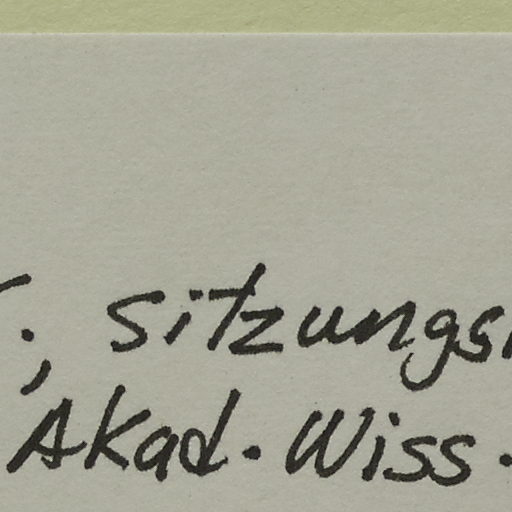 .; Sitzungs
Akad. Wiss.